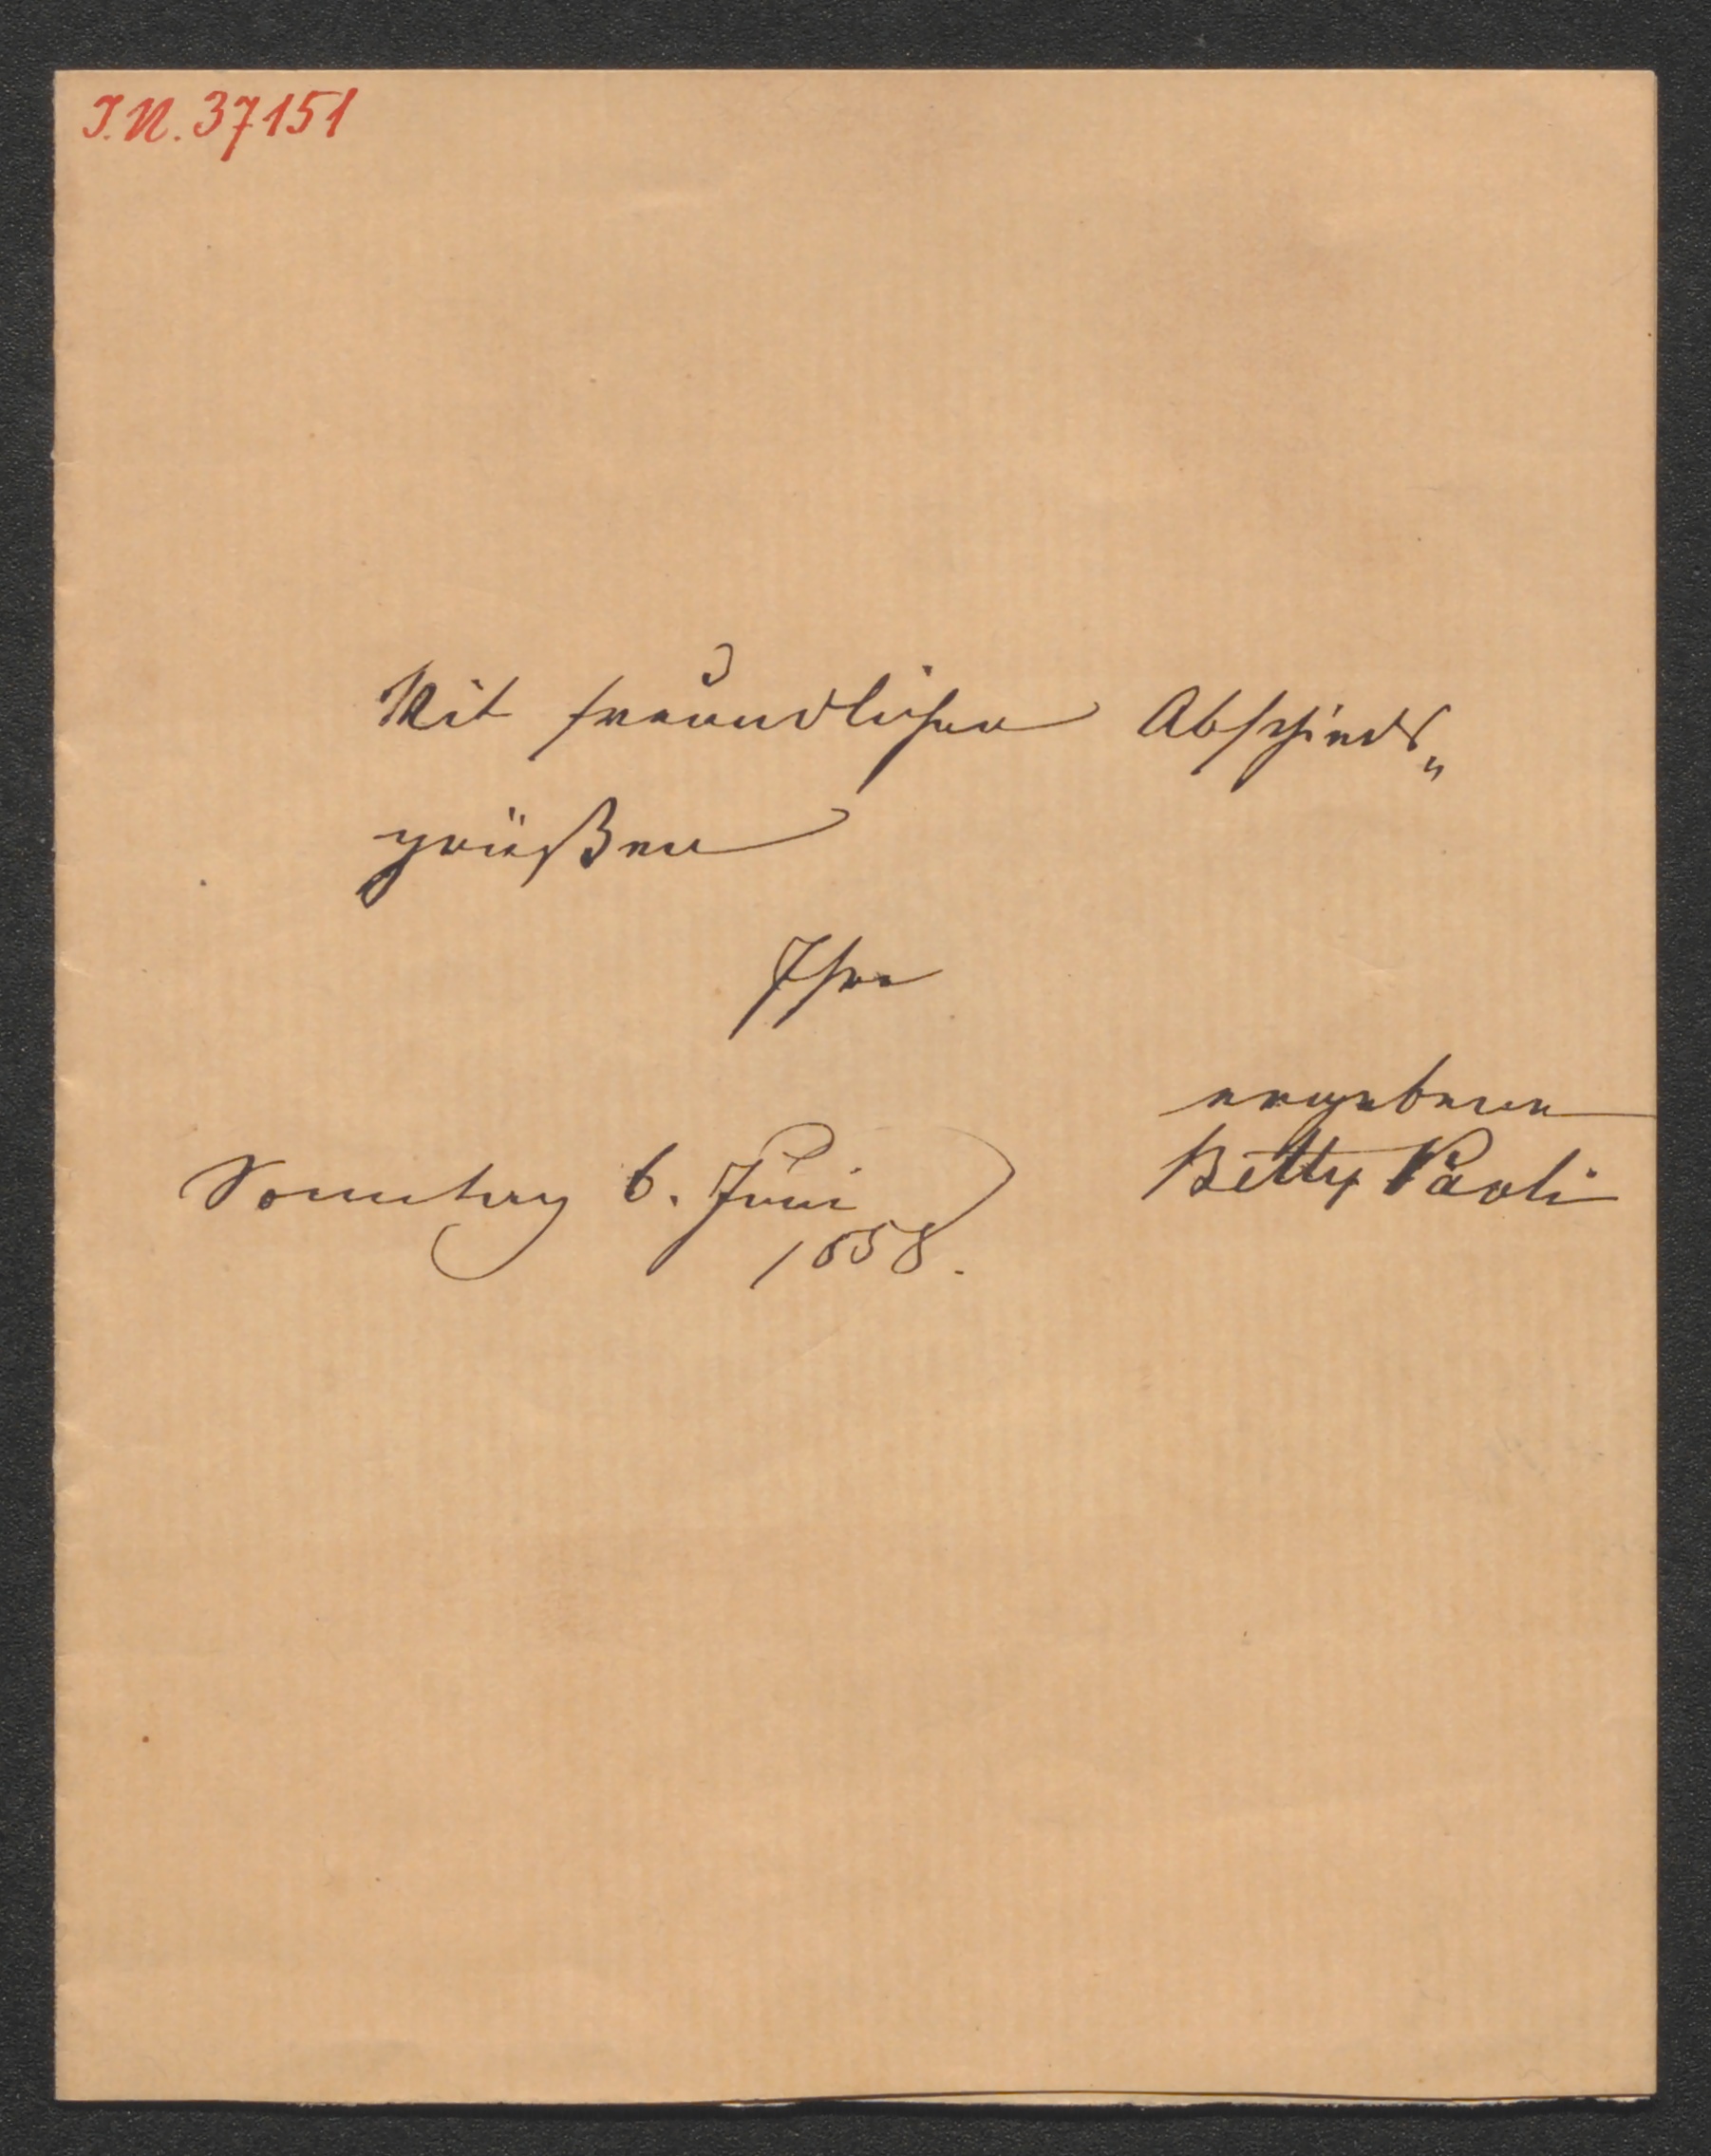 J.N. 37151
Mit freundlichen Abschieds„
grüßen
Ihre
ergebene
Betty Paoli
Sonntag 6. Juni
1858.